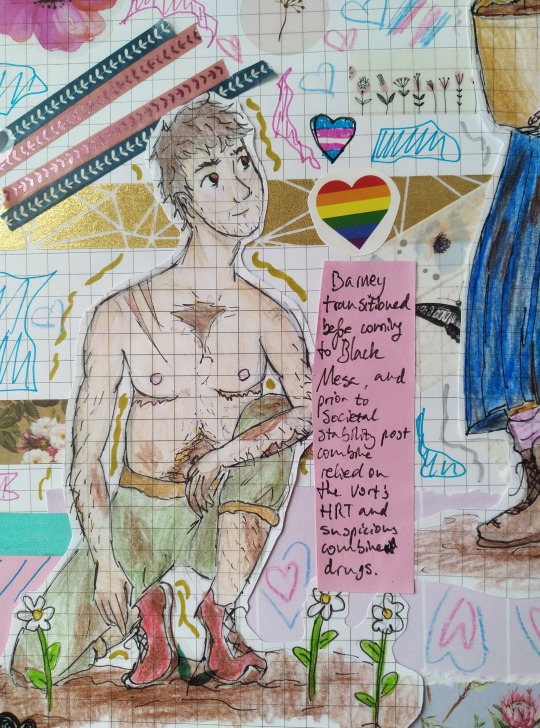 Barney
transitioned
before coming
to Black
Mesa, and
prior to
societal
stability post
combine
relied on
the vort's
HRT and
suspicious
combine
drugs.